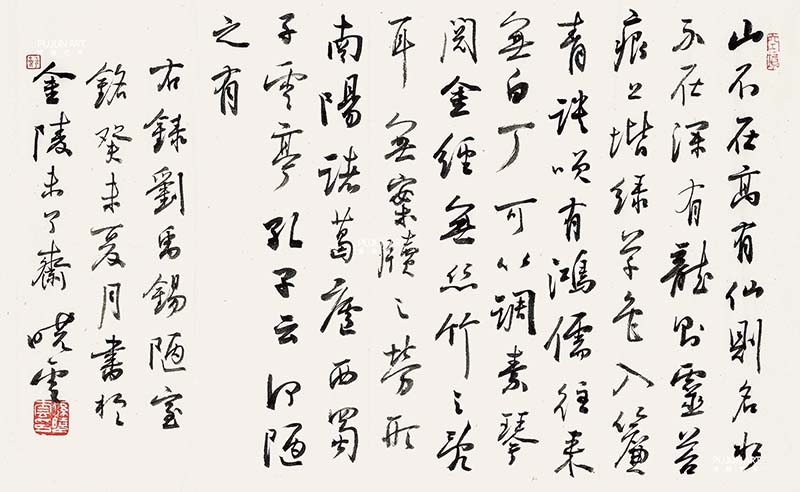 山不在高有仙則名水
不在深有龍則靈苔
痕上堦綠草色入簾
青談咲有鴻儒往来
無白丁可以調素琴
閱金經無絲竹之亂
耳無案牘之勞形
南陽諸葛廬西蜀
子雲亭孔子云何陋
之有
右錄劉禹錫陋室
銘癸未夏月書於
金陵未了齋 曉雲
PUJUN ART